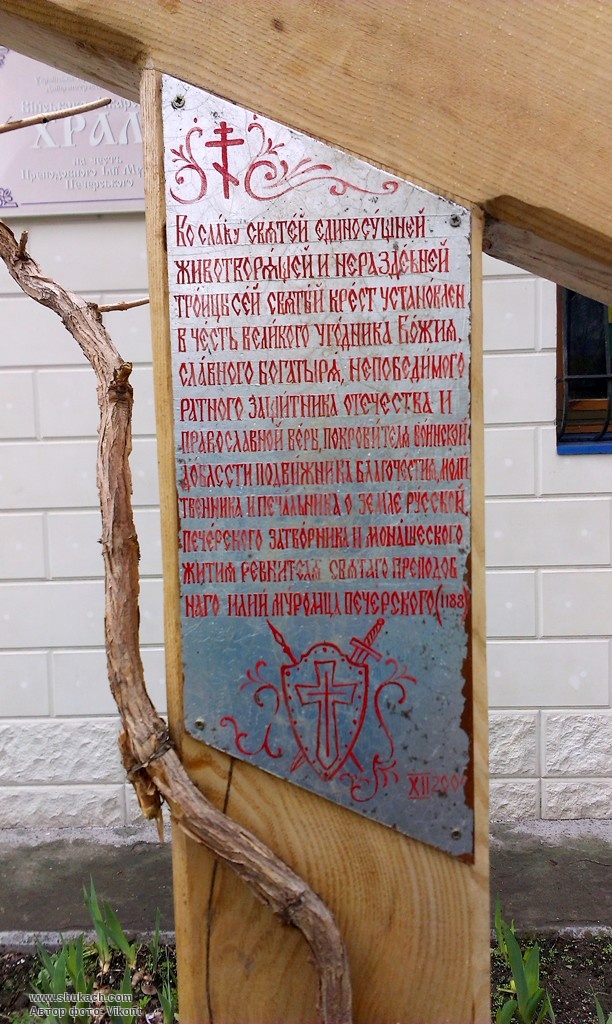 ХРАМ
на честь
Преподобного Іллі
Печерського
Во сла́ву святе́й единосу́щней
животворя́щей и нераздѣ́ьней
тро́ицѣ се́й святы́й кре́ст устано́влен
в че́сть вели́кого уго́дника Бо́жия,
сла́вного богатыря́, непобеди́мого
ратного защи́тника оте́чества и
правосла́вной ве́рѣ, покрови́теля во́инской
доблассти подвижника благочестия, моли
твенника и печа́льника о земле́ русской,
пече́рского затво́рника и мона́шеского
жития́ ревни́теля свята́го преподоб
наго илии́ муромца печерского (1188)
XII 200
www.shukach.com
Автор фото: Vikont